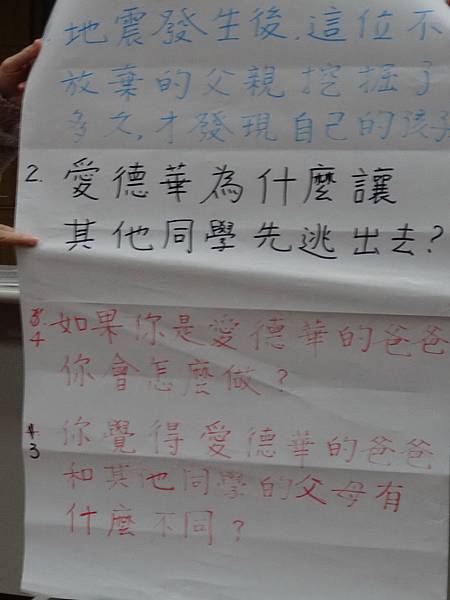 地震發生後,這位不
放棄的父親挖掘了
多久,才發現自己的孩子
2. 愛德華為什麼讓
其他同學先逃出去?
3. 4 如果你是愛德華的爸爸
你會怎麼做?
4. 3 你覺得愛德華的爸爸
和其他同學的父母有
什麼不同?